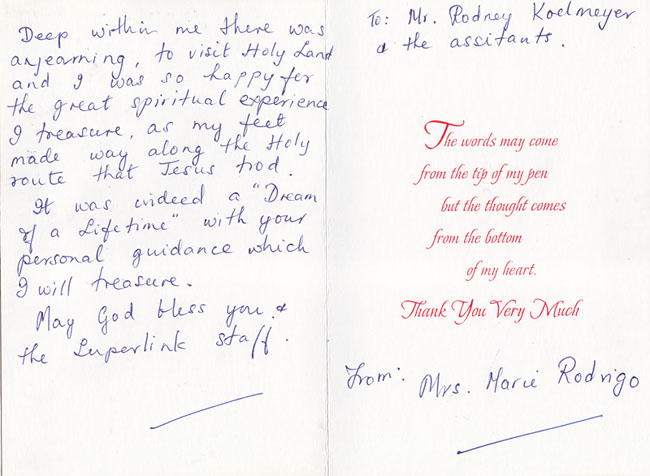 Deep within me there was
anyearning, to visit Holy Land
and I was so happy for
the great spiritual experience
I treasure, as my feet
made way along the Holy
route that Jesus trod.
It was indeed a "Dream
of a Lifetime" with your
personal guidance which
I will treasure.
May God bless you &
the Luperlink staff.
To: Mr. Rodney Koelmeyer
& the assitants.
The words may come
from the tip of my pen
but the thought comes
from the bottom
of my heart.
Thank You Very Much
From: Mrs. Marie Rodrigo